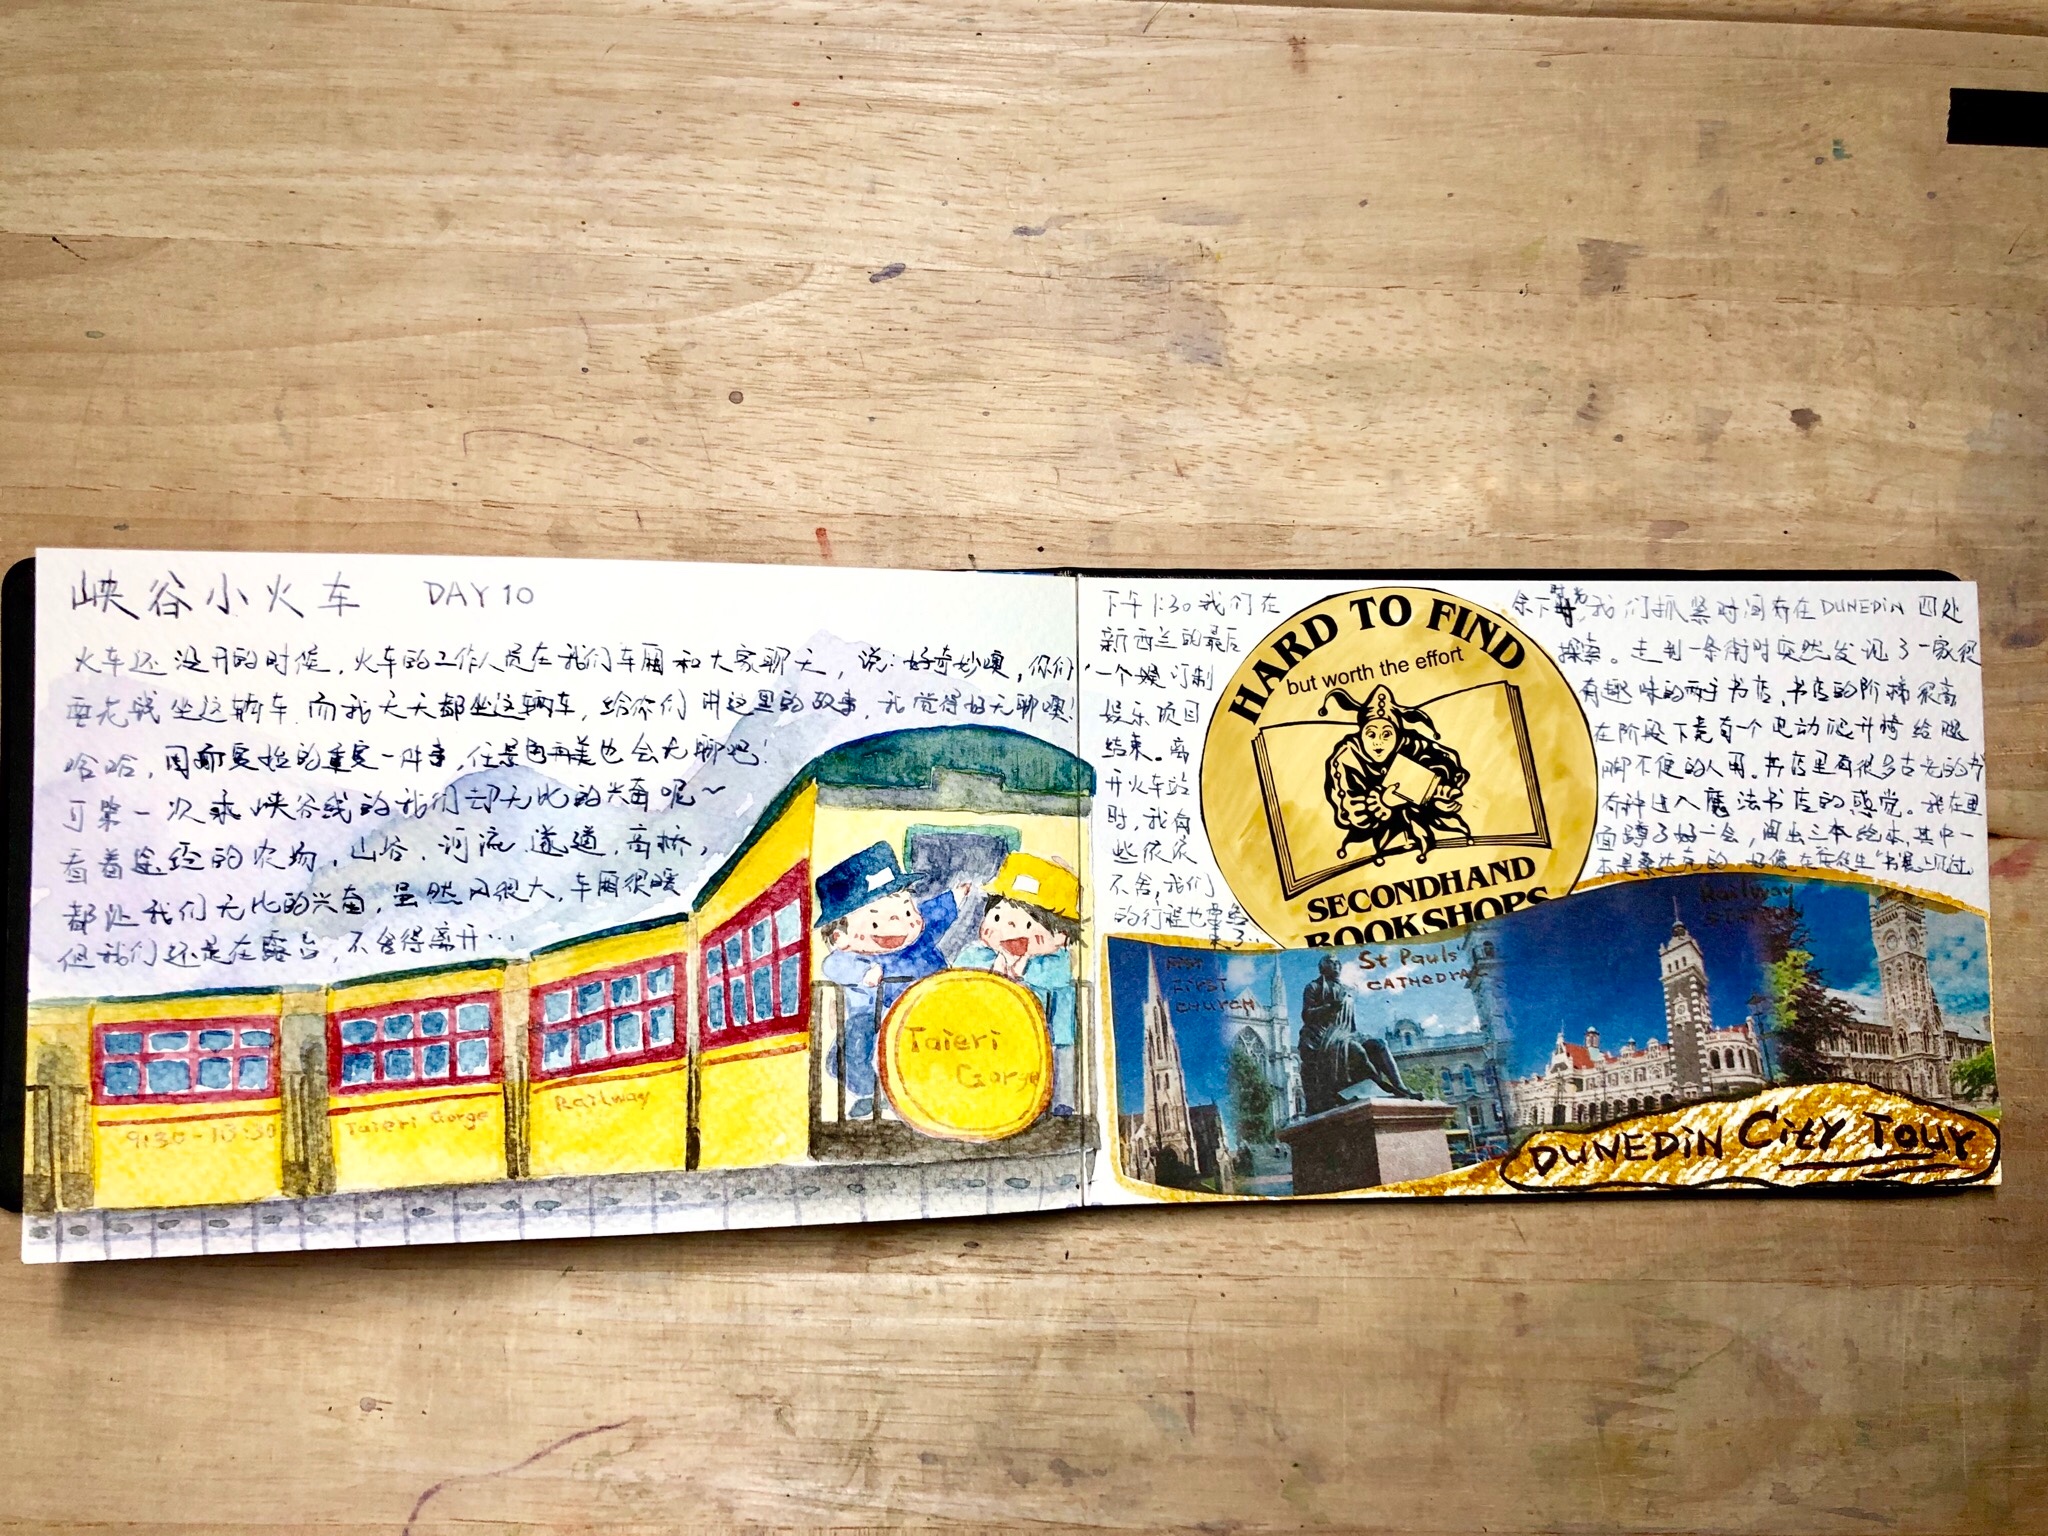 峡谷小火车 DAY 10
火车还没开的时候,火车的工作人员在我们车厢和大家聊天,说:好奇妙噢,你们
要花钱坐这辆车,而我天天都坐这辆车,给你们讲这里的故事,我觉得好无聊噢!
哈哈,周而复始的重复一件事,任景色再美也会无聊吧!
可第一次来峡谷线的我们却无比的兴奋呢~
看着途经的农场,山谷,河流,隧道,高桥,
都让我们无比的兴奋,虽然风很大,车厢很暖
但我们还是在露台,不舍得离开...
9:30-13:30
Taieri Gorge
Railway
Taieri
Gorge
下午1:30我们在
新西兰的最后
一个
娱乐项目
结束。离
开火车站
时,我有
些依依
不舍,我们
的行程也要结
束了..
HARD TO FIND
but worth the effort
SECONDHAND
BOOKSHOPS
余下时光,我们抓紧时间在DUNEDIN四处
探索。走到一条街时突然发现了一家很
有趣味的二手书店,书店的阶梯很高
在阶段下竟有一个电动爬升椅给腿
脚不便的人用。书店里有很多古老的书
有种进入魔法书店的感觉。我在里
面蹲了好一会,淘出三本绘本,其中一
本是桑达克的,好像在
FIRST
CHURCH
St Pauls'
CATHEDRAL
Railway
STATION
DUNEDIN City Tour